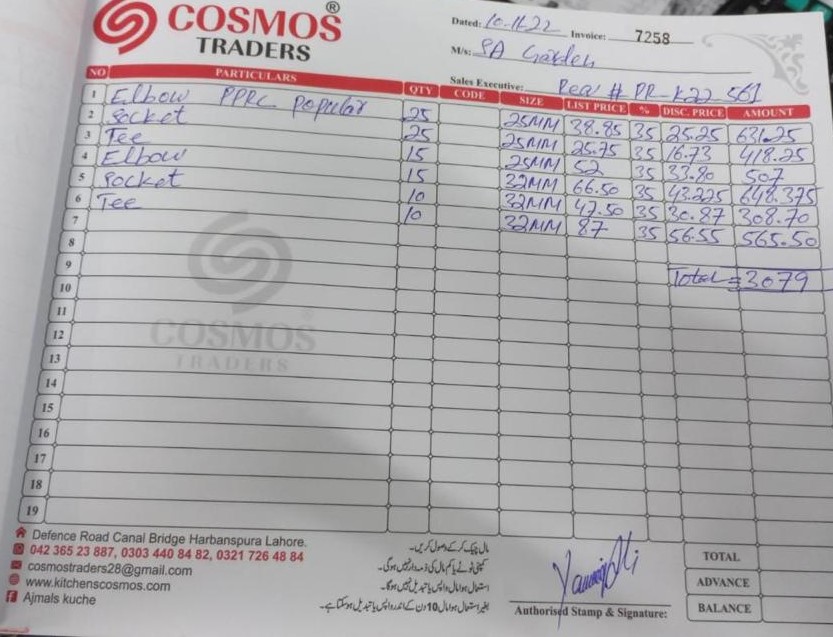 COSMOS ®
TRADERS
Dated: 10-11-22 Invoice: 7258
M/s: SA Garden
Sales Executive: Req # PR-K22-561
NO PARTICULARS QTY CODE SIZE LIST PRICE % DISC. PRICE AMOUNT
1 Elbow PPRC Popular 25 25MM 38.85 35 25.25 631.25
2 Socket 25 25MM 25.75 35 16.73 418.25
3 Tee 15 25MM 52 35 33.80 507
4 Elbow 15 32MM 66.50 35 43.225 648.375
5 Socket 10 32MM 47.50 35 30.87 308.70
6 Tee 10 32MM 87 35 56.55 565.50
7
8
9 Total = 3079
10
11
12
13
14
15
16
17
18
19
COSMOS
TRADERS
Defence Road Canal Bridge Harbanspura Lahore.
042 365 23 887, 0303 440 84 82, 0321 726 48 84
cosmostraders28@gmail.com
www.kitchenscosmos.com
Ajmals kuche
مال چیک کر کے وصول کریں۔
کمپنی ٹوٹے یا کم مال کی ذمہ دار نہیں ہوگی۔
استعمال ہوا مال واپس یا تبدیل نہیں ہوگا۔
بغیر استعمال ہوا مال 10 دن کے اندر واپس یا تبدیل ہوسکتا ہے۔
Authorised Stamp & Signature:
TOTAL
ADVANCE
BALANCE